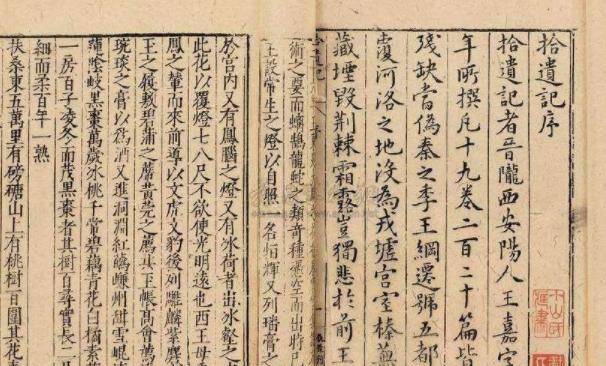 拾遺記序
拾遺記者晉隴西安陽人王嘉字
年所撰凡十九卷二百二十篇皆
殘缺當偽秦之季王綱遷號五都
覆河洛之地沒為戎墟宮室榛蕪
藏堙毀荊棘霜露豈獨悲於前王
術之要而龍蛇之類奇種憑空而出時
王設常生之燈以自照一名恒輝又列璠膏之
於宮內又有鳳腦之燈又有冰荷者出冰壑之
此花以覆燈七八尺不欲使光明遠也西王母
鳳之輦而來前導以文虎文豹後列雕麟紫麏
王之履敷碧蒲之席黃莞之薦共玉帳高會薦
琬琰之膏以為酒又進洞淵紅蘤嵊州甜雪崐
蓮陰岐黑棗萬歲冰桃千常碧藕青花白橘素
一房百子凌冬而茂黑棗者其樹百尋實長二
細而柔百年一熟
扶桑東五萬里有磅磄山上有桃樹百圍其花青